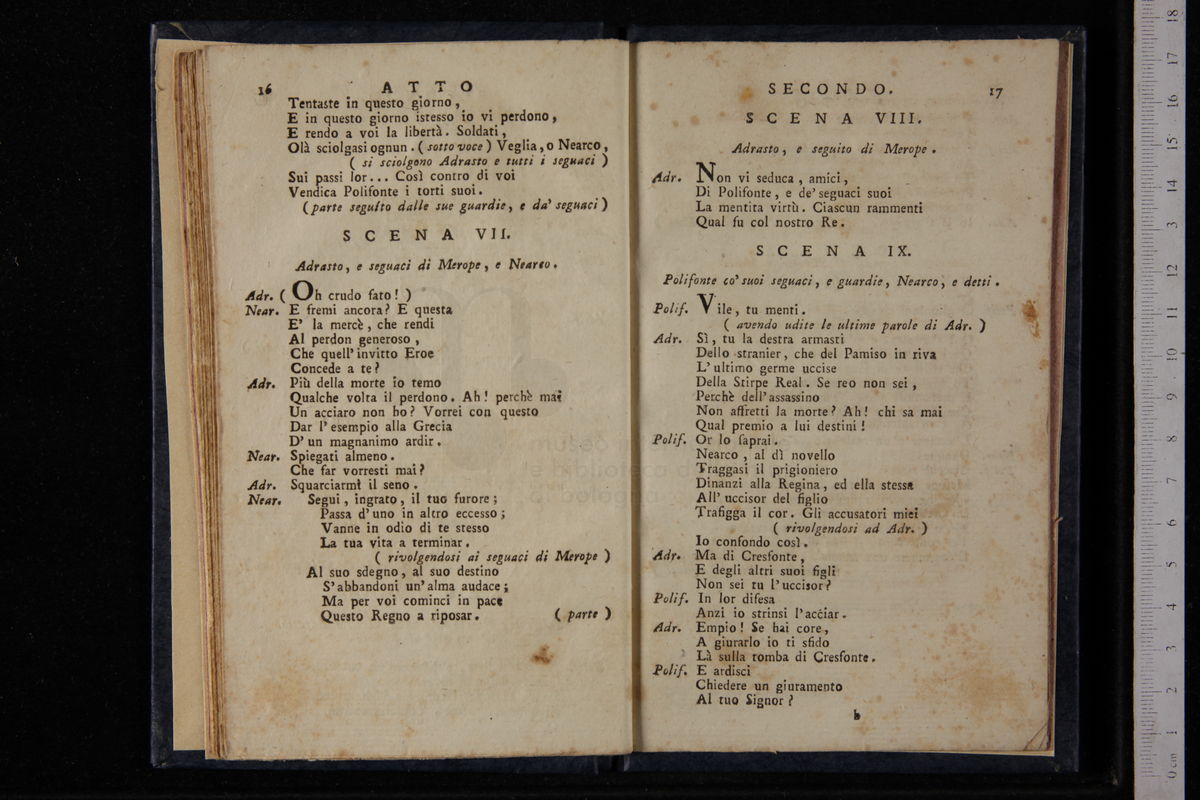 16 ATTO
Tentaste in questo giorno,
E in questo giorno istesso io vi perdono,
E rendo a voi la libertà. Soldati,
Olà sciolgasi ognun. (sotto voce) Veglia, o Nearco,
( si sciolgono Adrasto e tutti i seguaci )
Sui passi lor... Così contro di voi
Vendica Polifonte i torti suoi.
(parte seguito dalle sue guardie, e da' seguaci)
SCENA VII.
Adrasto, e seguaci di Merope, e Nearco.
Adr. ( Oh crudo fato! )
Near. E fremi ancora? E questa
E' la mercè, che rendi
Al perdon generoso,
Che quell' invitto Eroe
Concede a te?
Adr. Più della morte io temo
Qualche volta il perdono. Ah! perchè mai
Un acciaro non ho? Vorrei con questo
Dar l'esempio alla Grecia
D'un magnanimo ardir.
Near. Spiegati almeno.
Che far vorresti mai?
Adr. Squarciarmi il seno.
Near. Segui, ingrato, il tuo furore;
Passa d'uno in altro eccesso;
Vanne in odio di te stesso
La tua vita a terminar.
( rivolgendosi ai seguaci di Merope )
Al suo sdegno, al suo destino
S'abbandoni un'alma audace;
Ma per voi cominci in pace
Questo Regno a riposar. ( parte )
SECONDO. 17
SCENA VIII.
Adrasto, e seguito di Merope.
Adr. Non vi seduca, amici,
Di Polifonte, e de' seguaci suoi
La mentita virtù. Ciascun rammenti
Qual fu col nostro Re.
SCENA IX.
Polifonte co' suoi seguaci, e guardie, Nearco, e detti.
Polif. Vile, tu menti.
( avendo udite le ultime parole di Adr. )
Adr. Sì, tu la destra armasti
Dello stranier, che del Pamiso in riva
L'ultimo germe uccise
Della Stirpe Real. Se reo non sei,
Perchè dell'assassino
Non affretti la morte? Ah! chi sa mai
Qual premio a lui destini!
Polif. Or lo saprai.
Nearco, al dì novello
Traggasi il prigioniero
Dinanzi alla Regina, ed ella stessa
All'uccisor del figlio
Trafigga il cor. Gli accusatori miei
( rivolgendosi ad Adr. )
Io confondo così.
Adr. Ma di Cresfonte,
E degli altri suoi figli
Non sei tu l'uccisor?
Polif. In lor difesa
Anzi io strinsi l'acciar.
Adr. Empio! Se hai core,
A giurarlo io ti sfido
Là sulla tomba di Cresfonte.
Polif. E ardisci
Chiedere un giuramento
Al tuo Signor?
b